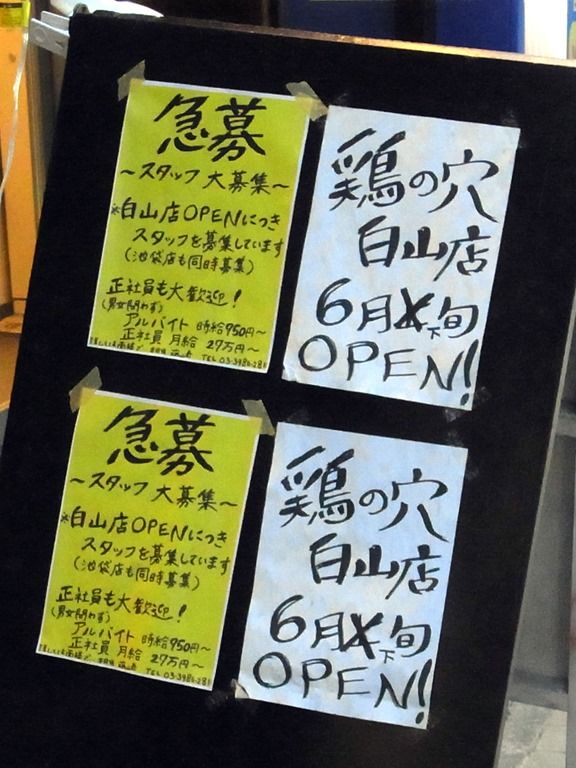 急募
～スタッフ 大募集～
*白山店OPENにつき
スタッフを募集しています
(池袋店も同時募集)
正社員も大歓迎!
(男女問わず)
アルバイト 時給950円～
正社員 月給 27万円～
TEL 03-3986-281
鶏の穴
白山店
6月下旬
OPEN!
急募
～スタッフ 大募集～
*白山店OPENにつき
スタッフを募集しています
(池袋店も同時募集)
正社員も大歓迎!
(男女問わず)
アルバイト 時給950円～
正社員 月給 27万円～
TEL 03-3986-281
鶏の穴
白山店
6月下旬
OPEN!